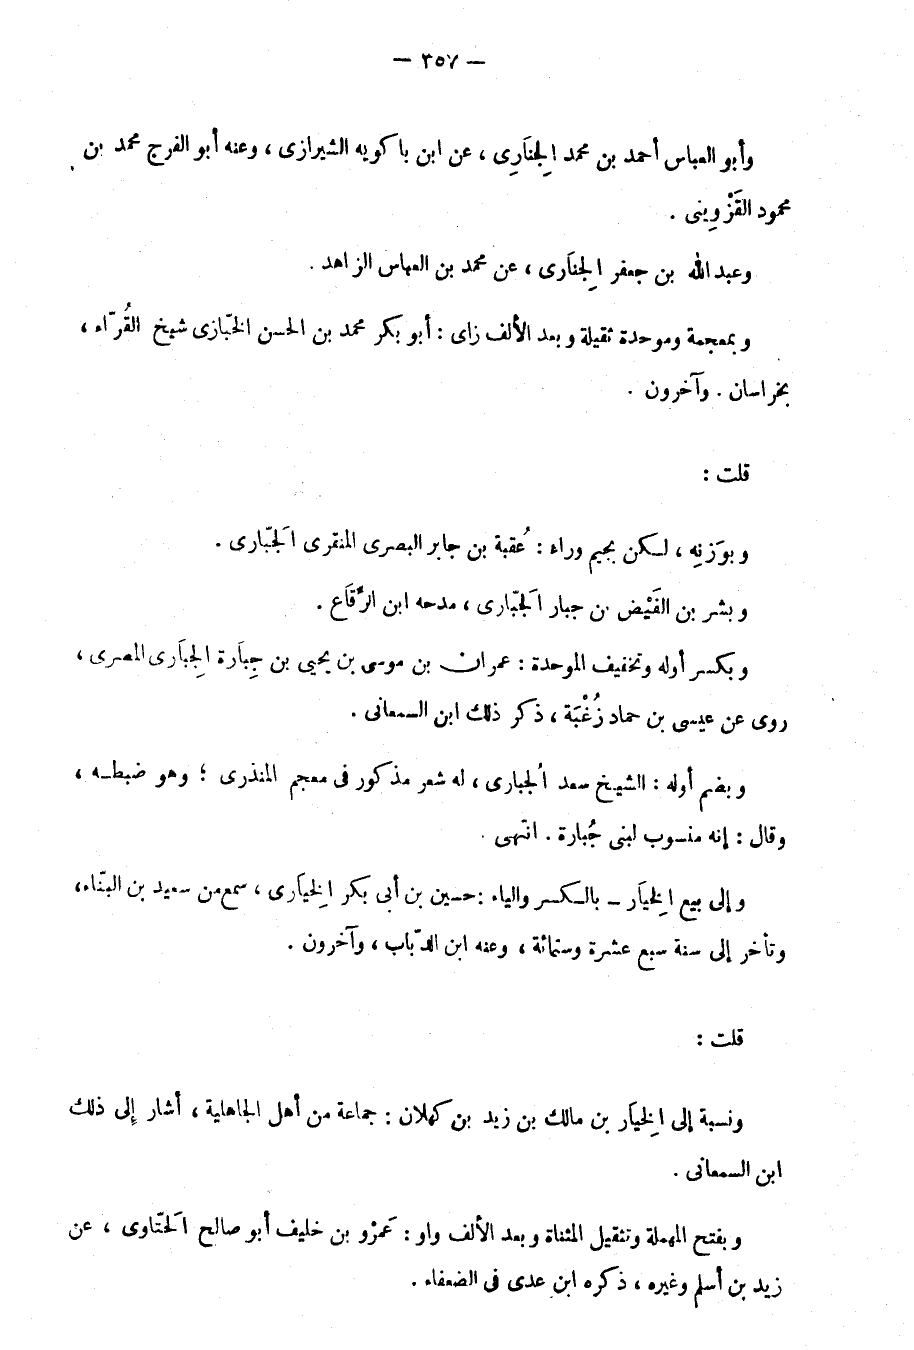 — ٣٥٧ —
وأبو العباس أحمد بن محمد الِجنَارِى ، عن ابن باكويه الشيرازى ، وعنه أبو الفرج محمد بن
محمود القَزْوِينى .
وعبد الله بن جعفر الِجنَارى ، عن محمد بن العباس الزاهد .
وبمعجمة وموحدة ثقيلة وبعد الألف زاى : أبو بكر محمد بن الحسن الخبّازى شيخ القُرّاء ،
بخراسان . وآخرون .
قلت :
وبوَزنِه ، لسكن بجيم وراء : عُقبة بن جابر البصرى المنقرى الَجبّارى .
وبشر بن الفَيْض بن جبار الَجبّارى ، مدحه ابن الرَّقَاع .
وبكسر أوله وتخفيف الموحدة : عمران بن موسى بن يحيى بن جِبَارة الِجبَارى المصرى ،
روى عن عيسى بن حماد زُغْبَة ، ذكر ذلك ابن السمعانى .
وبضم أوله : الشيخ سعد الُجبارى ، له شعر مذكور فى معجم المنذرى ؛ وهو ضبطه ،
وقال : إنه منسوب لبنى جُبارة . انتهى .
وإلى بيع الِخيَار – بالكسر والياء : حسين بن أبى بكر الِخيَارى ، سمع من سعيد بن البنّاء،
وتأخر إلى سنة سبع عشرة وستمائة ، وعنه ابن الدبّاب ، وآخرون .
قلت :
ونسبة إلى الِخيَار بن مالك بن زيد بن كهلان : جماعة من أهل الجاهلية ، أشار إلى ذلك
ابن السمعانى .
وبفتح المهملة وتثقيل المثناة وبعد الألف واو : عَمرْو بن خليف أبو صالح الَحتّاوى ، عن
زيد بن أسلم وغيره ، ذكره ابن عدى فى الضعفاء .